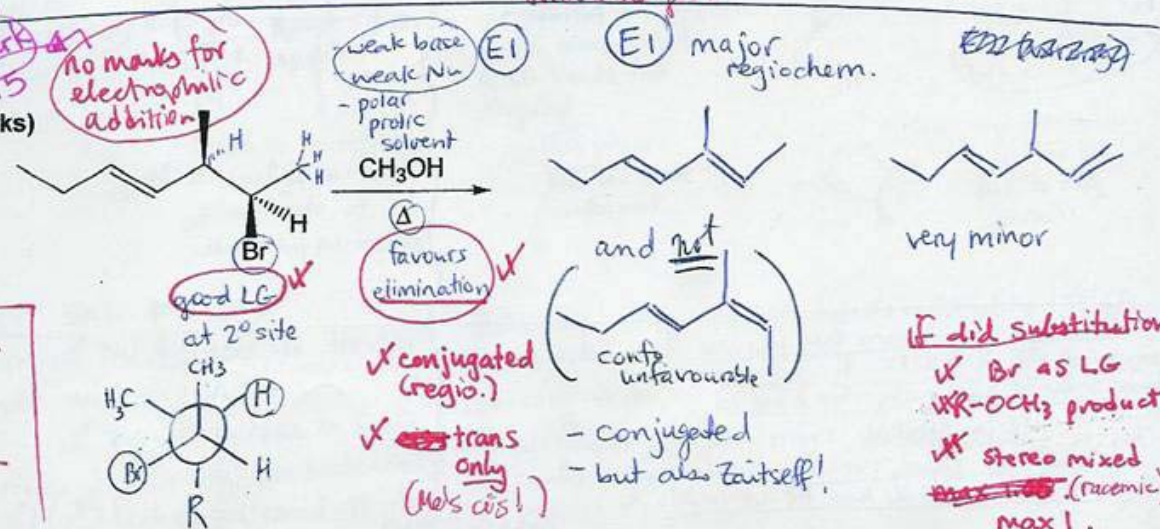 no marks for
electrophilic
addition
5
ks)
- weak base
- weak Nu
- polar
protic
solvent
E1
CH3OH
Δ
favours
elimination
E1
major
regiochem.
H
H
H
H
H
Br
good LG
at 2° site
CH3
H3C
H
Br
H
R
conjugated
(regio.)
trans
only
(Me's cis!)
and not
unfavourable
- conjugated
- but also Zaitseff!
very minor
If did substitution
Br as LG
R-OCH3 product
stereo mixed
(racemic
max 1.